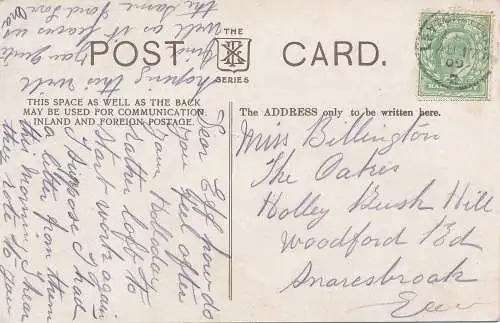 POST CARD.
THE
SERIES
THIS SPACE AS WELL AS THE BACK
MAY BE USED FOR COMMUNICATION
INLAND AND FOREIGN POSTAGE.
The ADDRESS only to be written here.
Miss Billington
The Oakes
Holley Bush Hill
Woodford Rd
Snaresbrook
Dear Eff how do
you feel after
your Holloday
rather loft to
Start work again
I suppose I had
a letter from them
this morning I hear
they rote to you
hoping this will
find you quite
well as it leaves us
the same